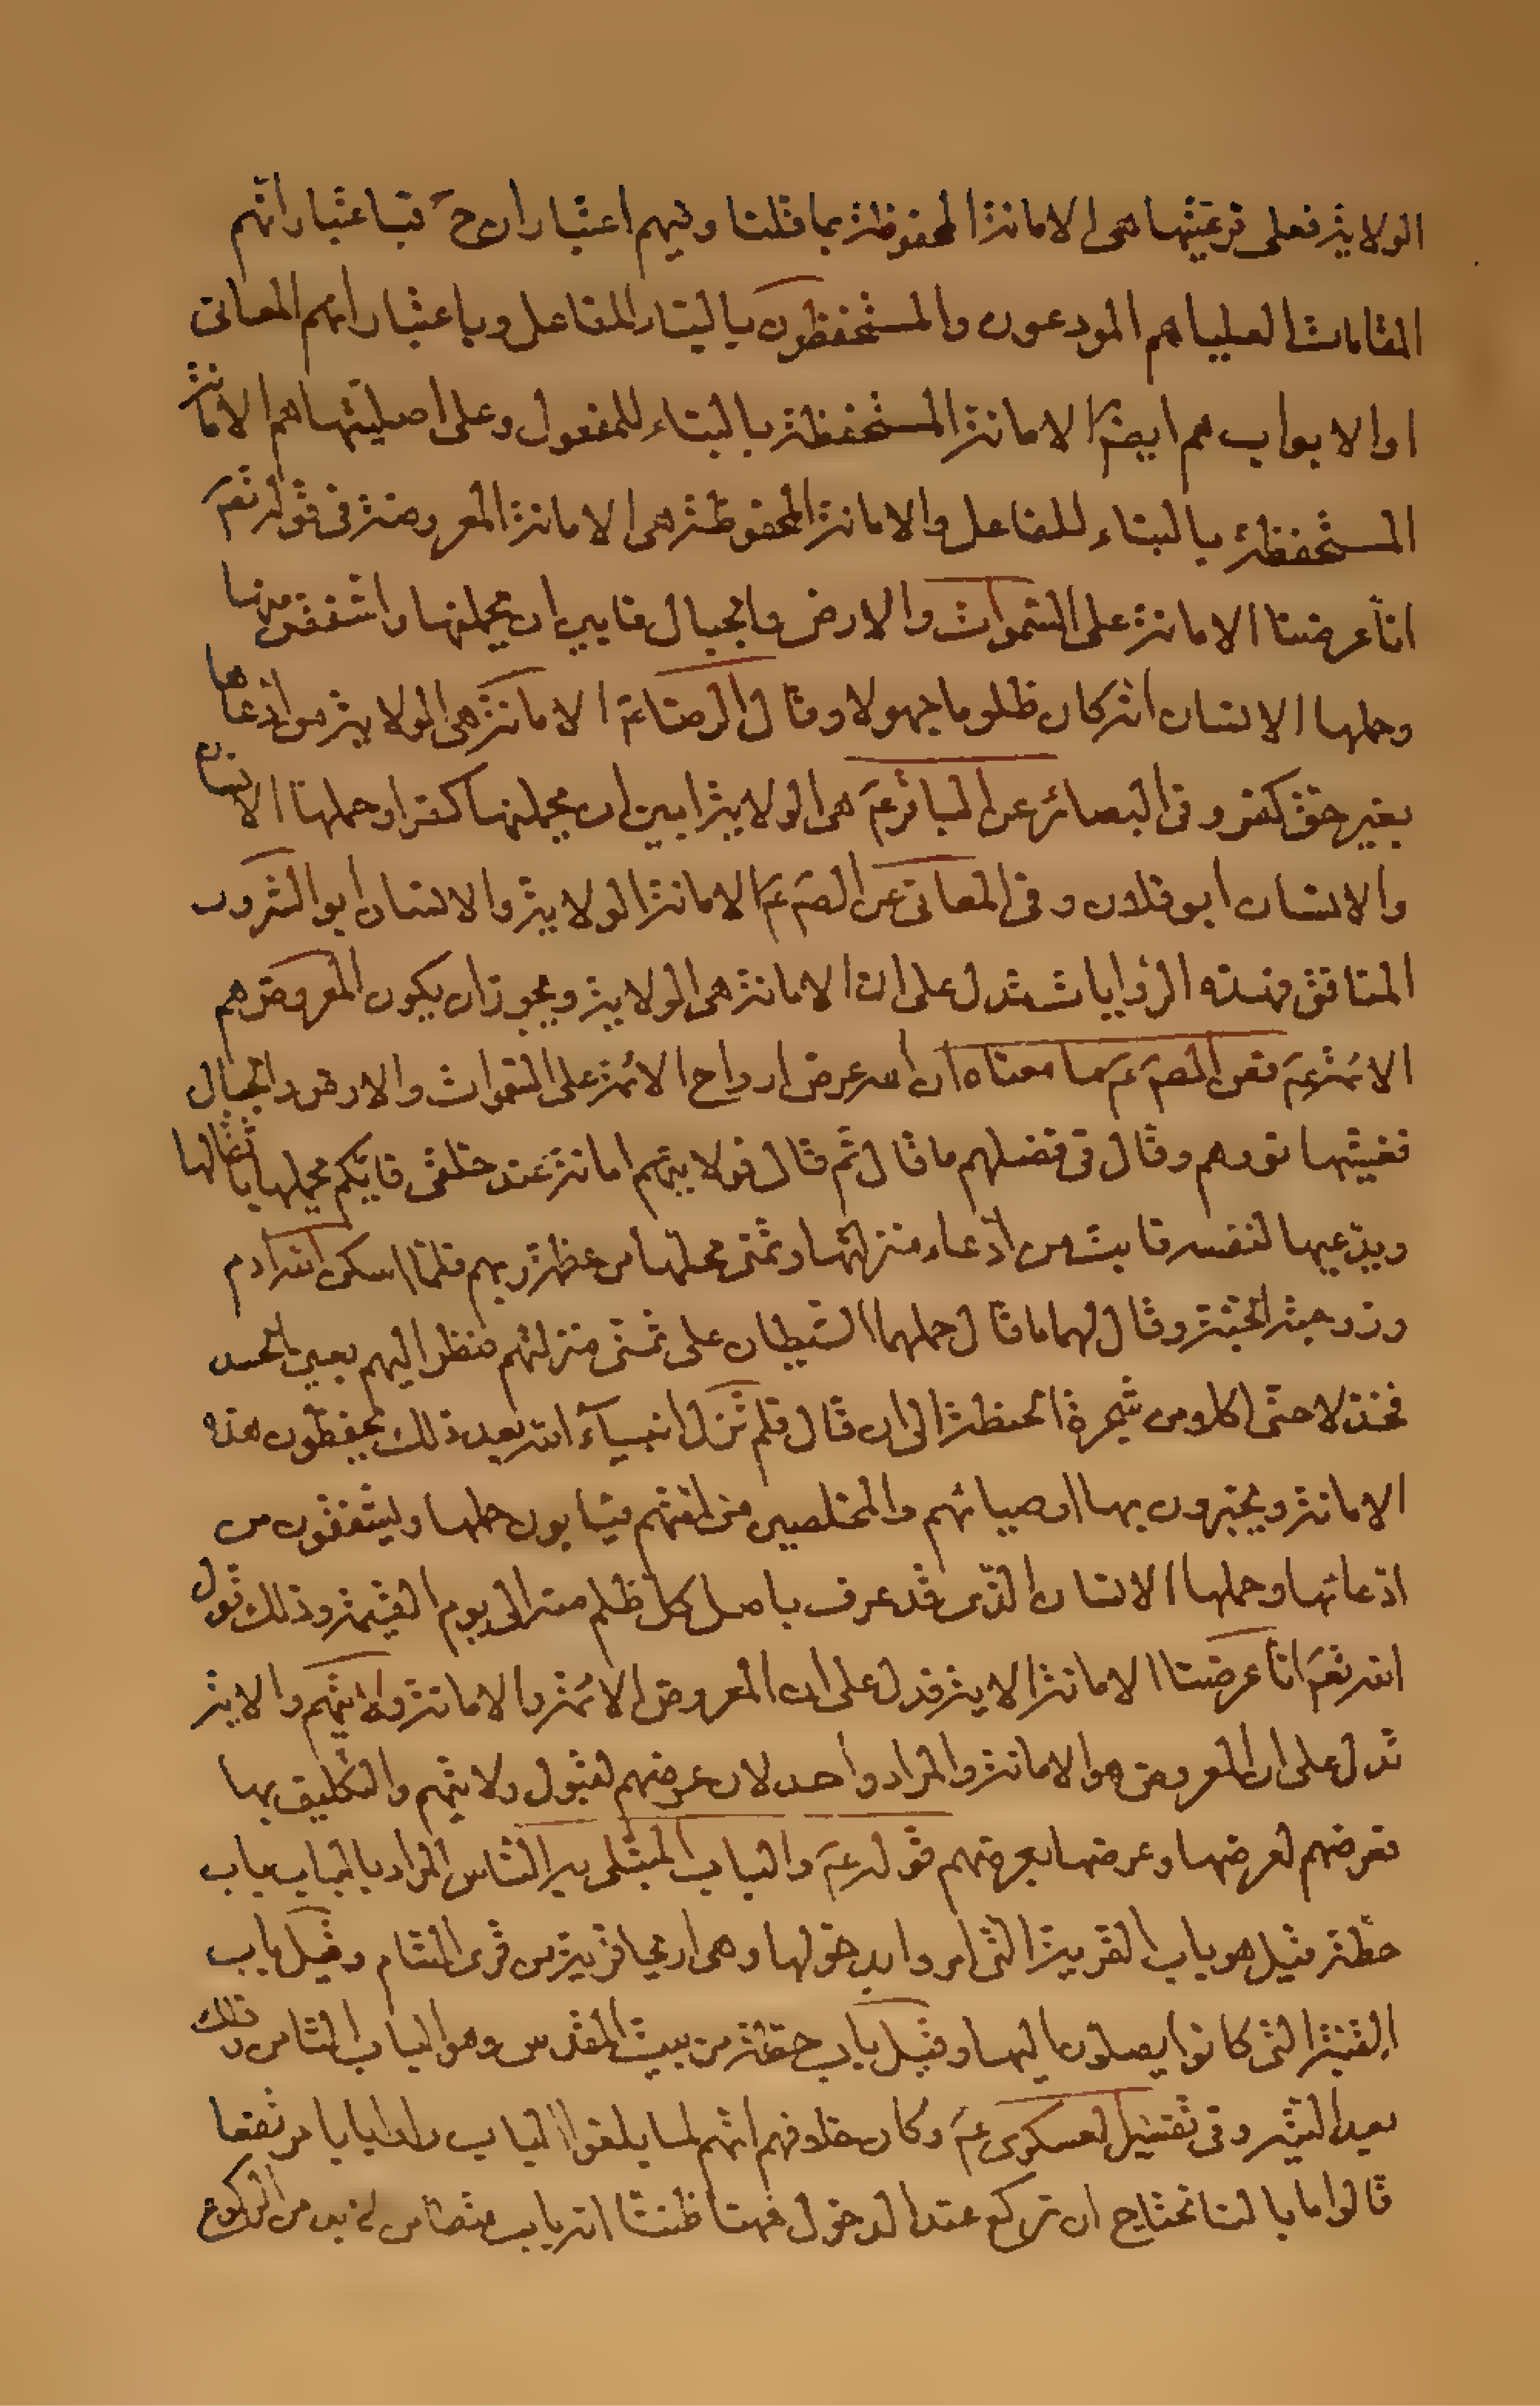 الولاية فعلى فرعيتها هى الامانة المحفوظة بما قلنا وفيهم اعتباران ح فباعتبار انهم
المقامات العليا هم المودعون والمستحفظون بالبناء للفاعل وباعتبار انهم المعانى
او الابواب هم ايضا الامانة المستحفظة بالبناء للمفعول وعلى اصليتها هم الامانة
المستحفظة بالبناء للفاعل والامانة المحفوظة هى الامانة المعروضة فى قوله تعم
انا عرضنا الامانة على السموات والارض والجبال فابين ان يحملنها واشفقن منها
وحملها الانسان انه كان ظلوما جهولا وقال الرضا عم الامانة هى الولاية من ادعاها
بغير حق كفر وفى البصائر عن الباقر عم هى الولاية ابين ان يحملنها كفرا وحملها الانسان
والانسان ابو فلان وفى المعانى عن الصم عم الامانة الولاية والانسان ابو الشرور
المنافق فهذه الروايات تدل على ان الامانة هى الولاية ويجوز ان يكون المعروض هم
الائمة عم فعن الصم عم ما معناه ان الله عرض ارواح الائمة على السموات والارض والجبال
فغشيها نورهم وقال فى فضلهم ما قال ثم قال فولايتهم امانة عند خلقى فايكم يحملها باثقالها
ويدعيها لنفسه فابت من ادعاء منزلتها وتمنى محلها من عظمة ربهم فلما اسكن الله ادم
وزوجته الجنة وقال لهما ما قال حملهما الشيطان على تمنى منزلتهم فنظرا اليهم بعين الحسد
فخذلا حتى اكلا من شجرة الحنطة الى ان قال فلم تزل انبياء الله بعد ذلك يحفظون هذه
الامانة ويخبرون بها اوصيائهم والمخلصين من امتهم فيابون حملها ويشفقون من
ادعائها وحملها الانسان الذى قد عرف باصل كل ظلم منه الى يوم القيمة وذلك قول
الله تعم انا عرضنا الامانة الاية فدل على ان المعروض الائمة والامانة ولايتهم والاية
تدل على ان المعروض هو الامانة والمراد واحد لان عرضهم لقبول ولايتهم والتكليف بها
فعرضهم لعرضها وعرضها بعرضهم قوله عم والباب المبتلى به الناس المراد بالباب باب
حطة قيل هو باب القرية التى امروا بدخولها وهى اريحا قرية من قرى الشام وقيل باب
القبة التى كانوا يصلون اليها وقيل باب حطة من بيت المقدس وهو الباب الثامن وذلك
بعد التيه وفى تفسير العسكرى عم وكان خلافهم انهم لما بلغوا الباب راوا بابا مرتفعا
قالوا ما بالنا نحتاج ان نركع عند الدخول فهنا ظننا انه باب متطامن لا بد من الركوع